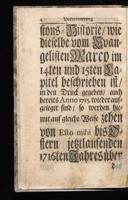 Vorerinnerung
sions-Historie/ wie
dieselbe vom Evan-
gelisten Marco im
14ten und 15ten Ca-
pitel beschrieben ist/
in den Druck gegeben/ auch
bereits Anno 1715. wieder auf-
geleget sind; so werden hie-
mit auf gleiche Weise zehen
von Esto mihi bis O-
stern jetztlauffenden
1716ten Jahres über